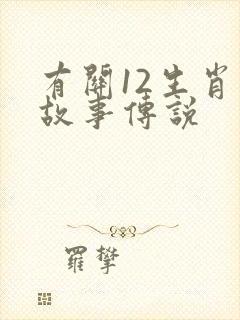 有關12生肖
故事傳說
羅攀